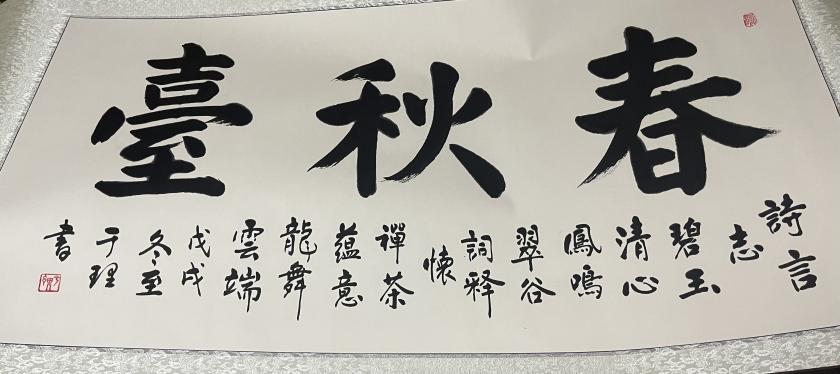 春秋臺
詩言
志
碧玉
清心
鳳鳴
翠谷
詞释
懷
禪茶
蘊意
龍舞
雲端
戊戌
冬至
于理
書